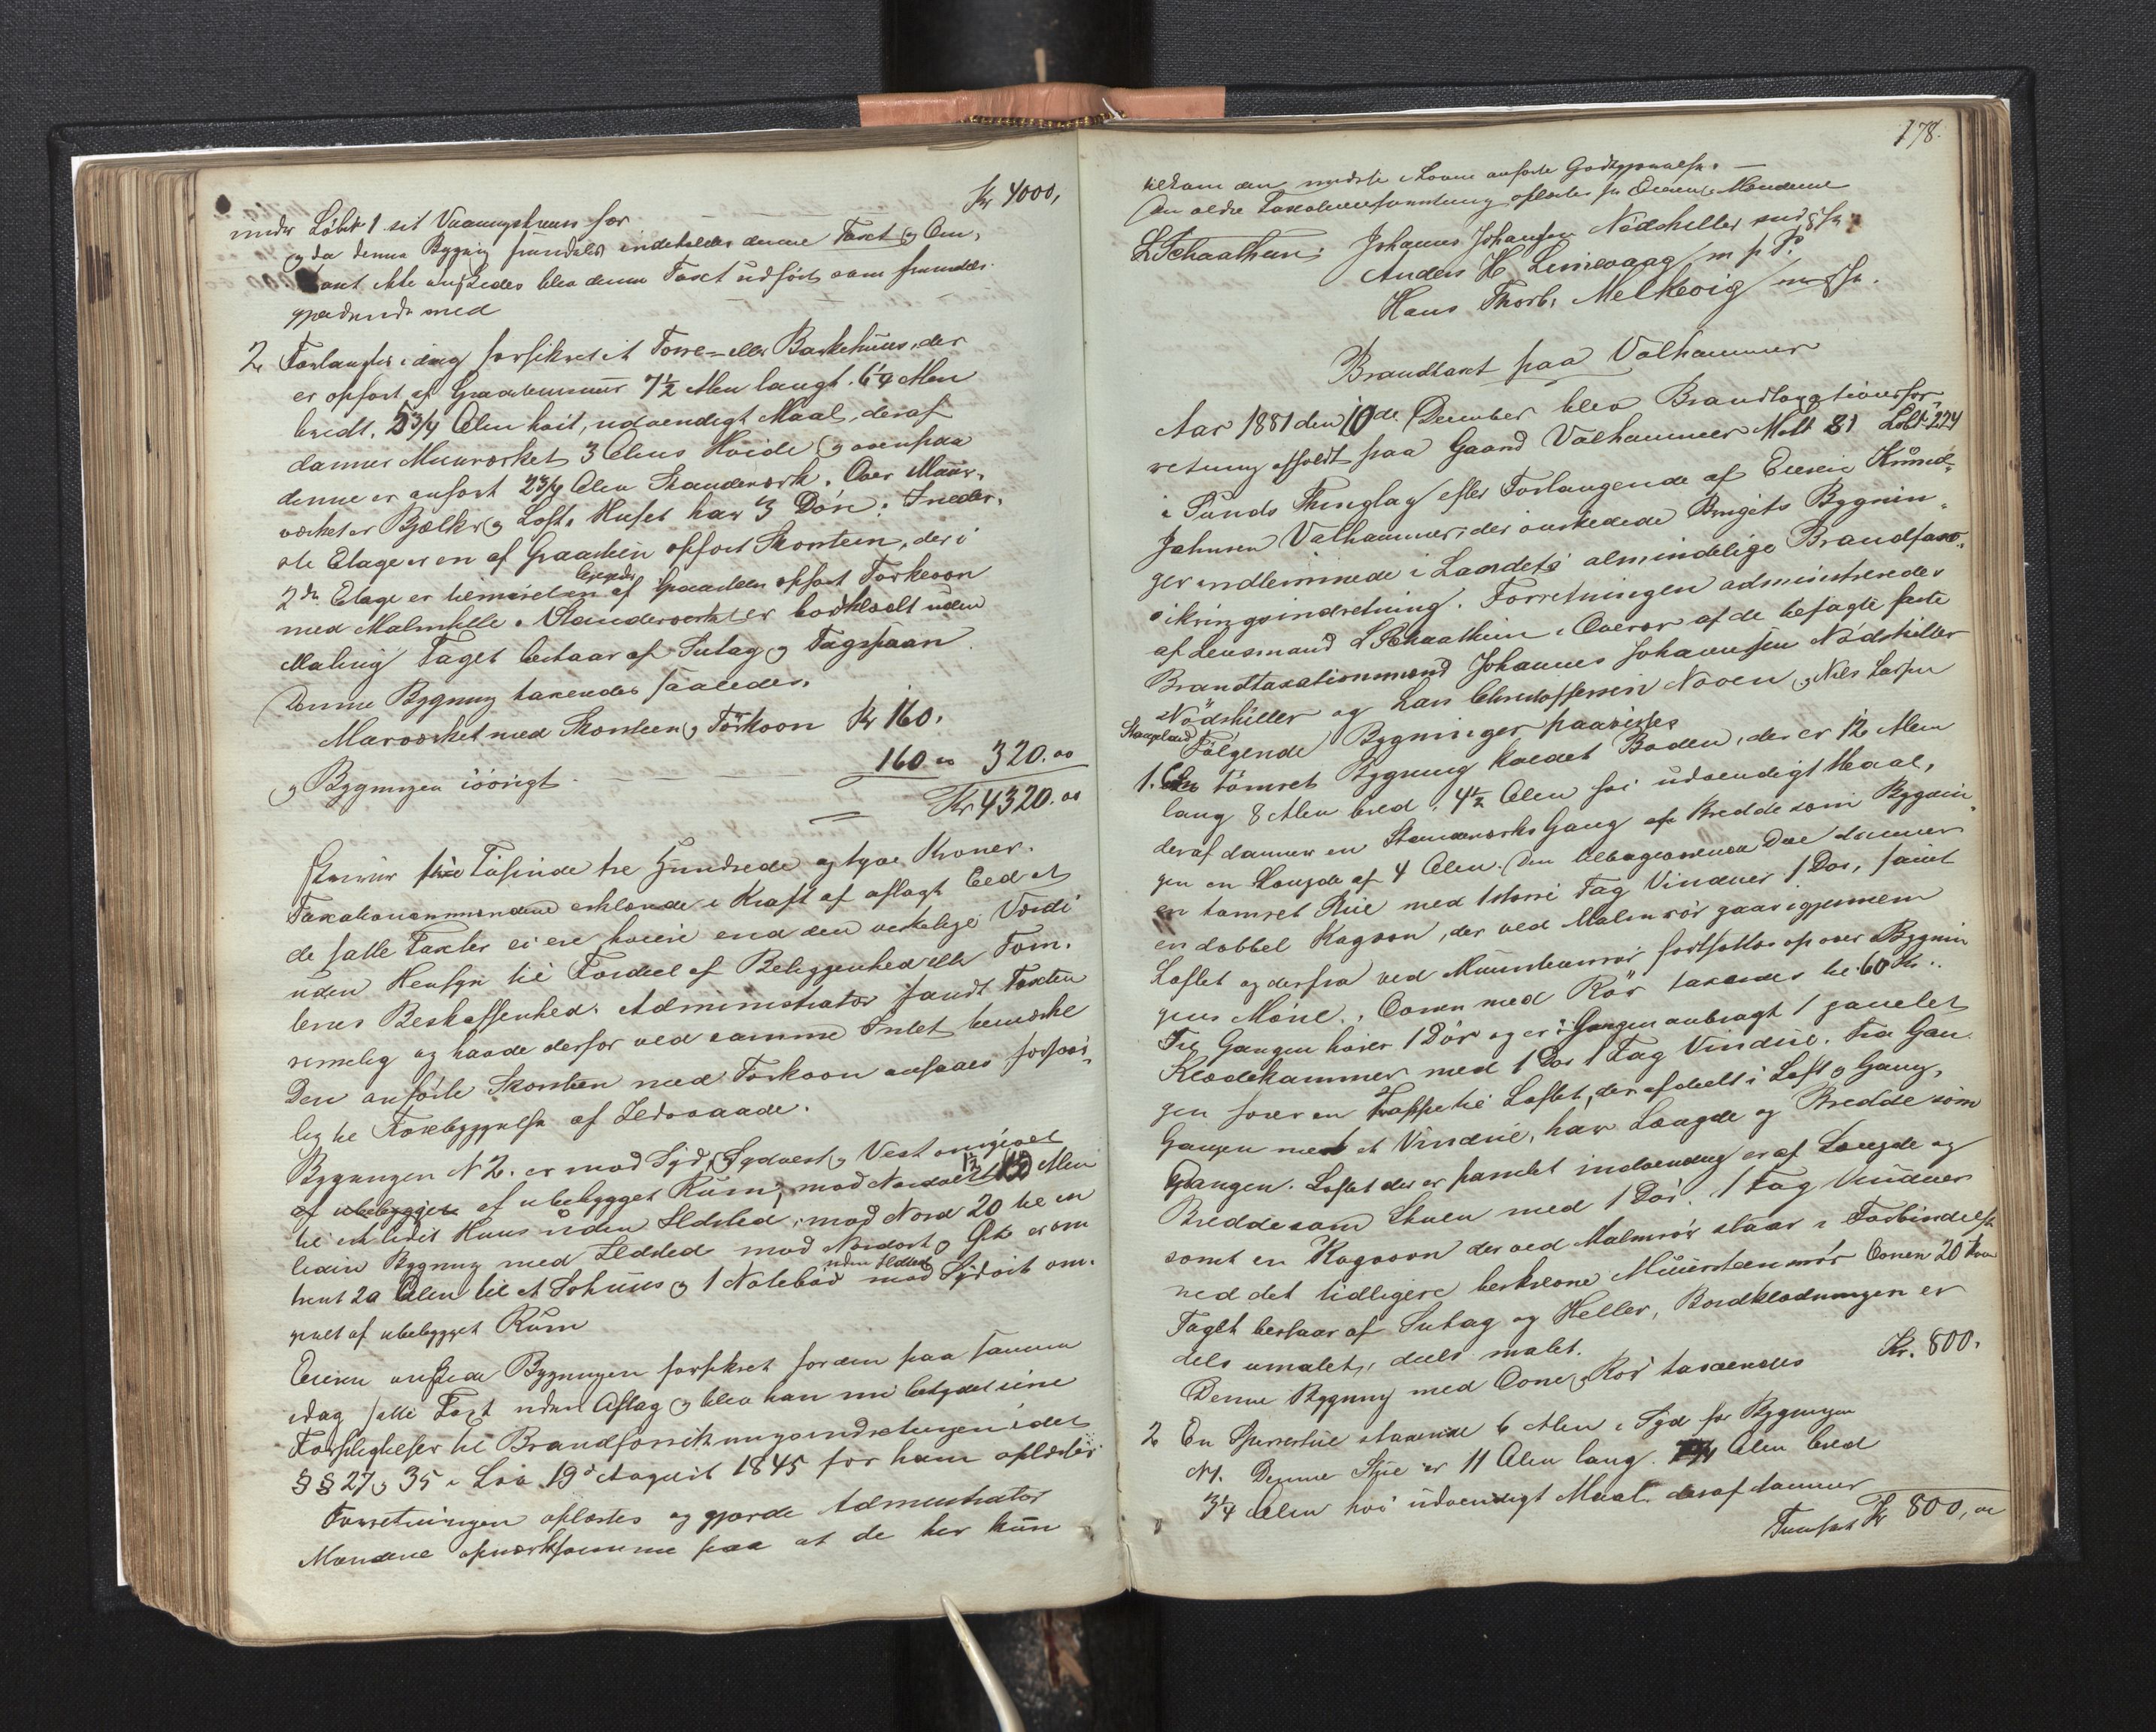 under Løbet 1 sit Vaaningshuus for Kr 4000,
og da denne Bygning fremdeles indeholder denne Taxt og Om-
taxt ikke ønskedes blev denne Taxt udført som fremdeles
gjældende med
2 Forlangtes idag forsikret et Torre- eller Barkehuus, der
er opført af Graasteensmuur 7 1/2 Alen langt. 6 1/4 Alen
bredt. 5 3/4 Alen høit, udvendigt Maal, deraf
danner Muurværket 3 Alens Høide og ovenpaa
denne er anført 2 3/4 Alen Standerværk. Over Muur-
værket er Bjælker og Loft. Huset har 3 Døre. I neder-
ste Etage er en af Graasteen opført Skorsteen, der i
2de Etage er en af Graasteen opført Torkeovn
med Malmhelle. Standerværket er bordklædt uden
Maling Taget bestaar af Sutag og Tagspaan.
Denne Bygning taxeredes saaledes.
Murværket med Skorsteen og Törkovn Kr 160.
og Bygningen iøvrigt 160 00 320.00
Kr 4320.00
Skriver fire Tusinde tre Hundrede og tyve Kroner.
Taxationsmændene erklærede i Kraft af aflagt Eed at
de satte Taxter ei ere høiere end den virkelige Værdi
uden Hensyn til Fordeel af Beliggenhed eller Tom-
tenes Beskaffenhed. Administrator fandt Taxten
rimelig og havde derfor ved samme Intet bemærke
Den anførte Skorsteen med Torkovn ansaaes forsvar-
lig til Forebyggelse af Ildsvaade.
Bygningen N 2. er mod Syd, Sydvest og Vest omgivet
af ubebygget af ubebygget Rum, mod Nordvest 12 Alen
til et lidet Huus uden Ildsted, mod Nord 20 til en
liden Bygning med Ildsted mod Nordost og Ost er om
trent 20 Alen til et Sohuus og 1 Notebod uden Ildsted mod Sydost om-
givet af ubebygget Rum
Eieren ønskede Bygningen forsikret for den paa samme
idag satte Taxt uden Aftag og blev han nu betydet sine
Forpligtelser til Brandforsikringsindretningen idet
§§ 27 og 35 i Lov 19de August 1845 for ham oplæstes
Forretningen oplæstes og gjorde Administrator
Mændene opmærksomme paa at de her kun
178.
tilkom den mindste i Loven anførte Godtgjørelse. —
Den ældre Taxationsforretning oplæstes for Eieren og Mændene
L Schaathun Johannes Johansen Nödsheller
Anders H Linievaag m p P.
Hans Thorb. Melkevig
Brandtaxt paa Valhammer
Aar 1881 den 10de December blev Brandtaxationsfor-
retning afholdt paa Gaard Valhammer Matr 81 Löbe 224
i Sunds Thinglag efter Forlangende af Eieren Knud
Johnsen Valhammer, der ønskede Brugets Bygnin-
ger indlemmede i Landets almindelige Brandforsi-
kringsindretning. Forretningen administreredes
af Lensmand L Schaathun i Overvær af de befagte faste
Brandtaxationsmænd Johannes Johannesen Nödshelles
Nödshelles og Lars Christoffersen Noven og Nils Larsen
Skaaland Følgende Bygninger paavistes
1. En tömret Bygning kaldet Boden, der er 12 Alen
lang 8 Alen bred. 4 1/2 Alen høi udvendigt Maal,
deraf danner en Standerværks Gang af Bredde som Bygnin-
gen en Længde af 4 Alen. Den tilbageværende Deel danner
en tømret Stue med 1 større Fag Vinduer 1 Dør, samt
en dobbel Kagovn, der ved Malmrör gaar igjennem
Loftet og derfra ved Muursteensrör fortsættes op over Bygnin-
gens Møne. Ovnen med Rör taxeredes til 60 Kr.
Til Gangen hører 1 Dör og er i Gangen anbragt 1 panelet
Klædekammer med 1 Dør 1 Fag Vindue. Fra Gan-
gen fører en Trappe til Loftet, der er afdeelt i Loft og Gang,
Gangen med et Vindue, har Længde og Bredde som
Gangen. Loftet der er panelet indvendig er af Længde og
Bredde som Stuen med 1 Dör. 1 Fag Vinduer
samt en Kagovn der ved Malmrör staar i Forbindelse
ved det tidligere beskrevne Muursteensrör Ovnen 20 Kroner
Taget bestaar af Sutag og Heller, Bordklædningen er
dels umalet, deels malet.
Denne Bygning med Ovne og Rör taxeredes Kr. 800.
2 En Sperrestue staaende 6 Alen i Syd for Bygningen
N 1. Denne Stue er 11 Alen lang. Alen bred
3 1/4 Alen høi udvendigt Maal. deraf danner
Transport Kr 800,00